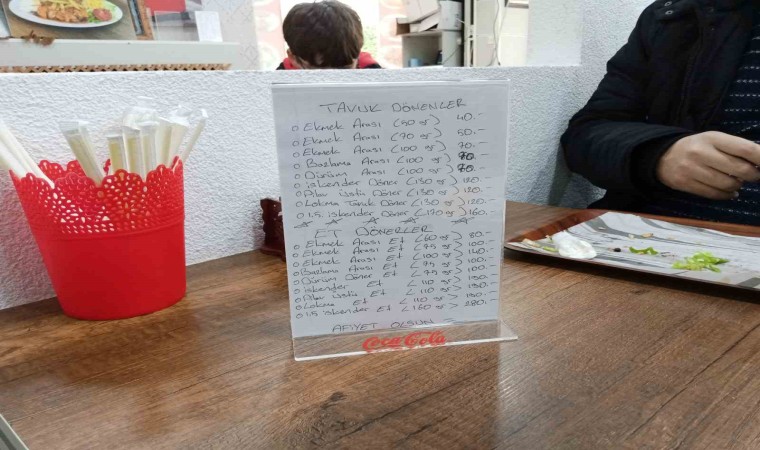 TAVUK DÖNERLER
o Ekmek Arası (50 gr) 40.-
o Ekmek Arası (70 gr) 50.-
o Ekmek Arası (100 gr) 70.-
o Bazlama Arası (100 gr)
o Dürüm Arası (100 gr)
o İskender Döner (130 gr) 120.-
o Pilav Üstü Döner (130 gr) 120.-
o Lokma Tavuk Döner (130 gr) 120.-
o 1.5 iskender Döner (170 gr) 160.-
ET DÖNERLER
o Ekmek Arası Et (60 gr) 80.-
o Ekmek Arası Et (75 gr) 100.-
o Ekmek Arası Et (100 gr) 140.-
o Bazlama Arası Et (75 gr) 100.-
o Dürüm Döner Et (75 gr) 100.-
o iskender Et (110 gr)
o Pilav üstü Et (110 gr)
o Lokma Et (110 gr)
o 1.5 iskender Et (160 gr)
AFİYET OLSUN
Coca-Cola